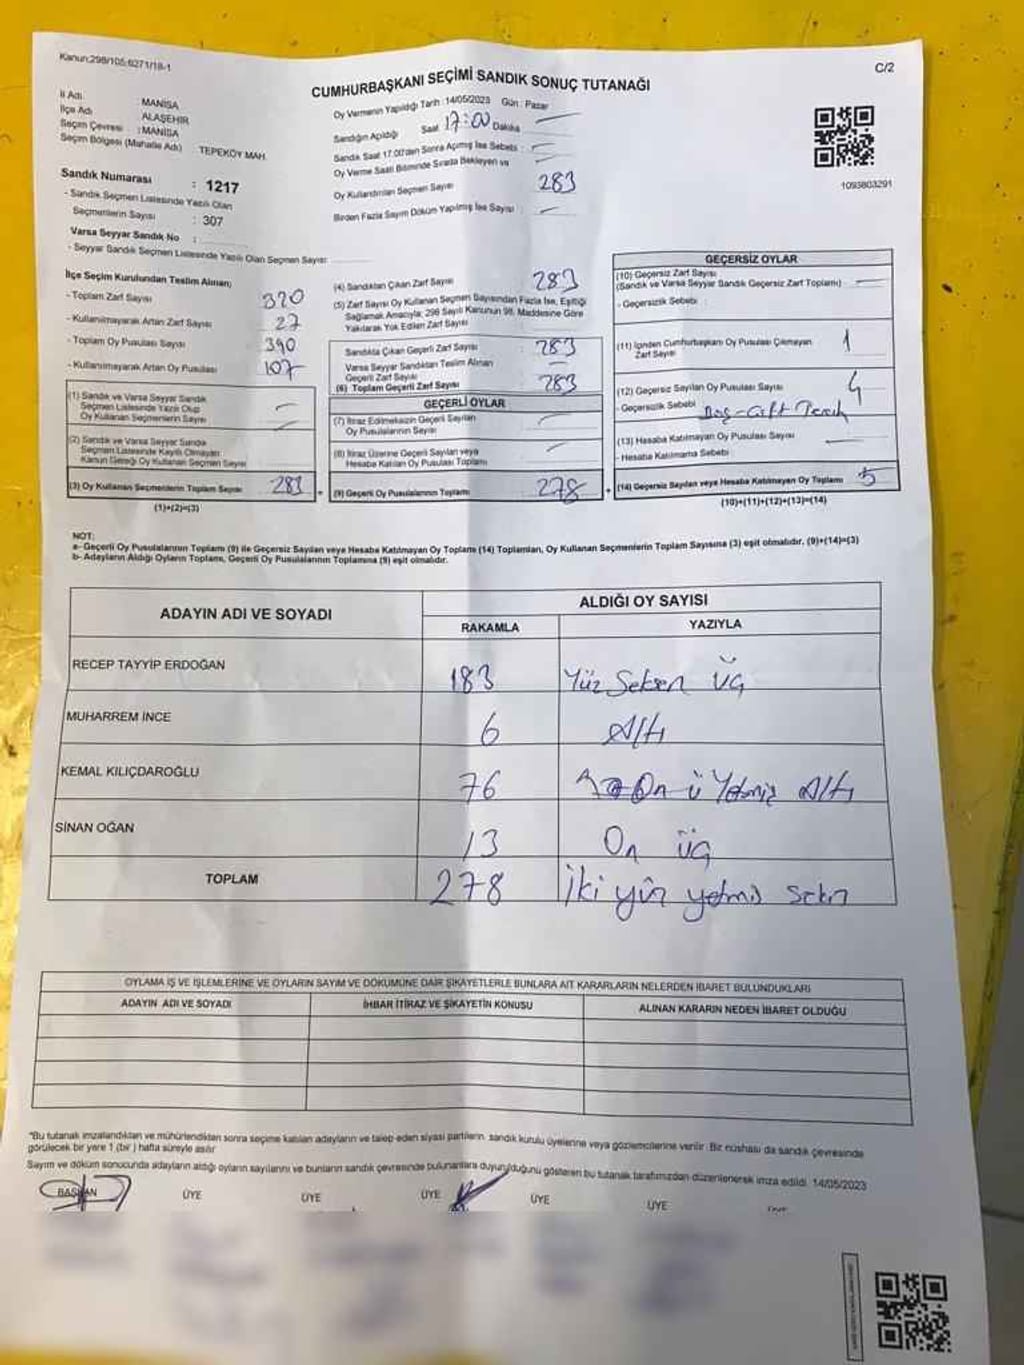 Kanun:298/105;6271/18-1
C/2
CUMHURBAŞKANI SEÇİMİ SANDIK SONUÇ TUTANAĞI
İl Adı MANİSA
İlçe Adı ALAŞEHİR
Seçim Çevresi : MANİSA
Seçim Bölgesi (Mahalle Adı) : TEPEKÖY MAH.
Oy Vermenin Yapıldığı Tarih : 14/05/2023 Gün : Pazar
Sandığın Açıldığı Saat 17:00 Dakika
Sandık Saat 17.00'den Sonra Açılmış İse Sebebi :
Oy Verme Saati Bitiminde Sırada Bekleyen ve
Oy Kullandırılan Seçmen Sayısı 283
Birden Fazla Sayım Döküm Yapılmış İse Sayısı :
1093803291
Sandık Numarası : 1217
- Sandık Seçmen Listesinde Yazılı Olan
Seçmenlerin Sayısı : 307
Varsa Seyyar Sandık No :
- Seyyar Sandık Seçmen Listesinde Yazılı Olan Seçmen Sayısı :
İlçe Seçim Kurulundan Teslim Alınan;
- Toplam Zarf Sayısı 320
- Kullanılmayarak Artan Zarf Sayısı 27
- Toplam Oy Pusulası Sayısı 390
- Kullanılmayarak Artan Oy Pusulası 107
(1) Sandık ve Varsa Seyyar Sandık
Seçmen Listesinde Yazılı Olup
Oy Kullanan Seçmenlerin Sayısı
(2) Sandık ve Varsa Seyyar Sandık
Seçmen Listesinde Kayıtlı Olmayan
Kanun Gereği Oy Kullanan Seçmen Sayısı
(3) Oy Kullanan Seçmenlerin Toplam Sayısı 283
(1)+(2)=(3)
(4) Sandıktan Çıkan Zarf Sayısı 283
(5) Zarf Sayısı Oy Kullanan Seçmen Sayısından Fazla İse, Eşitliği
Sağlamak Amacıyla; 298 Sayılı Kanunun 98. Maddesine Göre
Yakılarak Yok Edilen Zarf Sayısı
Sandıkta Çıkan Geçerli Zarf Sayısı : 283
Varsa Seyyar Sandıktan Teslim Alınan
Geçerli Zarf Sayısı
(6) Toplam Geçerli Zarf Sayısı 283
GEÇERLİ OYLAR
(7) İtiraz Edilmeksizin Geçerli Sayılan
Oy Pusulalarının Sayısı
(8) İtiraz Üzerine Geçerli Sayılan veya
Hesaba Katılan Oy Pusulası Toplamı
(9) Geçerli Oy Pusulalarının Toplamı 278
GEÇERSİZ OYLAR
(10) Geçersiz Zarf Sayısı
(Sandık ve Varsa Seyyar Sandık Geçersiz Zarf Toplamı)
- Geçersizlik Sebebi :
(11) İçinden Cumhurbaşkanı Oy Pusulası Çıkmayan
Zarf Sayısı 1
(12) Geçersiz Sayılan Oy Pusulası Sayısı 4
- Geçersizlik Sebebi Boş-Çift Tercih
(13) Hesaba Katılmayan Oy Pusulası Sayısı
- Hesaba Katılmama Sebebi :
(14) Geçersiz Sayılan veya Hesaba Katılmayan Oy Toplamı 5
(10)+(11)+(12)+(13)=(14)
NOT:
a- Geçerli Oy Pusulalarının Toplamı (9) ile Geçersiz Sayılan veya Hesaba Katılmayan Oy Toplamı (14) Toplamları, Oy Kullanan Seçmenlerin Toplam Sayısına (3) eşit olmalıdır. (9)+(14)=(3)
b- Adayların Aldığı Oyların Toplamı, Geçerli Oy Pusulalarının Toplamına (9) eşit olmalıdır.
ADAYIN ADI VE SOYADI ALDIĞI OY SAYISI
RAKAMLA YAZIYLA
RECEP TAYYİP ERDOĞAN 183 Yüz Seksen Üç
MUHARREM İNCE 6 Altı
KEMAL KILIÇDAROĞLU 76 On ü Yetmiş Altı
SİNAN OĞAN 13 On üç
TOPLAM 278 İki yüz yetmiş sekiz
OYLAMA İŞ VE İŞLEMLERİNE VE OYLARIN SAYIM VE DÖKÜMÜNE DAİR ŞİKAYETLERLE BUNLARA AİT KARARLARIN NELERDEN İBARET BULUNDUKLARI
ADAYIN ADI VE SOYADI İHBAR İTİRAZ VE ŞİKAYETİN KONUSU ALINAN KARARIN NEDEN İBARET OLDUĞU
*Bu tutanak imzalandıktan ve mühürlendikten sonra seçime katılan adayların ve talep eden siyasi partilerin sandık kurulu üyelerine veya gözlemcilerine verilir. Bir nüshası da sandık çevresinde
görülecek bir yere 1 (bir) hafta süreyle asılır
Sayım ve döküm sonucunda adayların aldığı oyların sayılarını ve bunların sandık çevresinde bulunanlara duyurulduğunu gösteren bu tutanak tarafımızdan düzenlenerek imza edildi. 14/05/2023
BAŞKAN ÜYE ÜYE ÜYE ÜYE ÜYE ÜYE